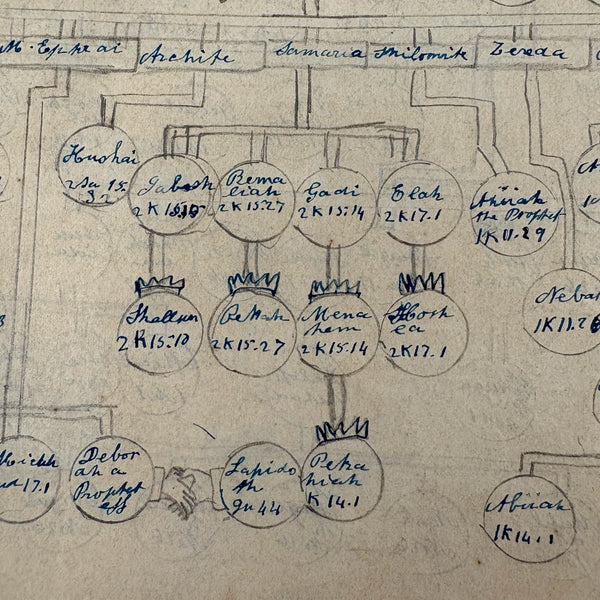 M. Ephrai
Archite
Samaria
Shilonite
Zereda
Hushai
2 Sa 15.
32
Jabesh
2 K 15.10
Rema
liah
2 K 15.27
Gadi
2 K 15.14
Elah
2 K 17.1
Ahijah
the Prophet
1 K 11.29
Nebat
1 K 11.26
Shallum
2 K 15.10
Pekah
2 K 15.27
Mena
hem
2 K 15.14
Hosh
ea
2 K 17.1
17.1
Debor
ah a
Prophet
ess
Lapido
th
Ju 4 4
Peka
hiah
K 14.1
Abijah
1 K 14.1